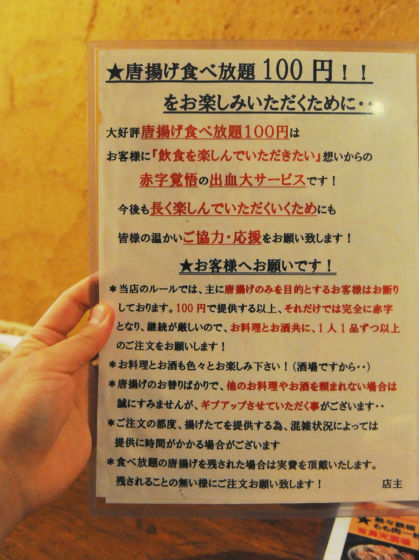 ★唐揚げ食べ放題100円！！
をお楽しみいただくために・・
大好評唐揚げ食べ放題100円は
お客様に『飲食を楽しんでいただきたい』想いからの
赤字覚悟の出血大サービスです！
今後も長く楽しんでいただくいくためにも
皆様の温かいご協力・応援をお願い致します！
★お客様へお願いです！
＊当店のルールでは、主に唐揚げのみを目的とするお客様はお断り
しております。100円で提供する以上、それだけでは完全に赤字
となり、継続が厳しいので、お料理とお酒共に、1人1品ずつ以上
のご注文をお願いします！
＊お料理とお酒も色々とお楽しみ下さい！（酒場ですから・・）
＊唐揚げのお替りばかりで、他のお料理やお酒を頼まれない場合は
誠にすみませんが、ギブアップさせていただく事がございます・・
＊ご注文の都度、揚げたてを提供する為、混雑状況によっては
提供に時間がかかる場合がございます
＊食べ放題の唐揚げを残された場合は実費を頂戴いたします。
残されることの無い様にご注文お願い致します！
店主